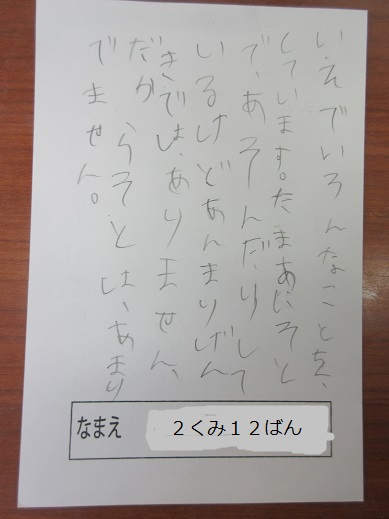 いえでいろんなことを、
しています。たまあにそと
で、あそんだりして
いるけどあんまりげん
きでは、ありません、
だからそとは、あまり
でません。
なまえ ２くみ１２ばん